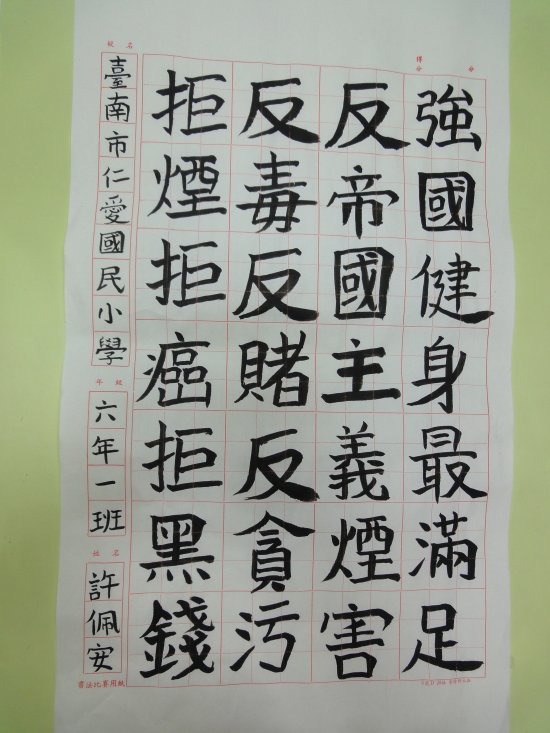 得分 分
強國健身最滿足
反帝國主義煙害
反毒反賭反貪污
拒煙拒癌拒黑錢
校名
臺南市仁愛國民小學
年級
六年一班
姓名
許佩安
書法比賽用紙